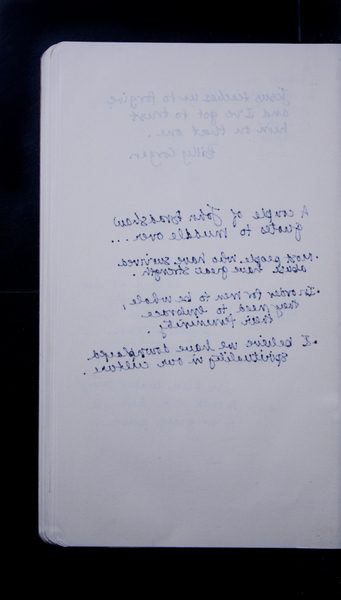 Jesus teaches us to forgive
and I've got to trust
him on that one.
Billy Corgan
A couple of John Bradshaw
quotes to muddle over...
• Most people who have survived
abuse have great strength.
• In order for men to be whole,
they need to embrace
their femininity.
• I believe we have downplayed
spirituality in our culture.